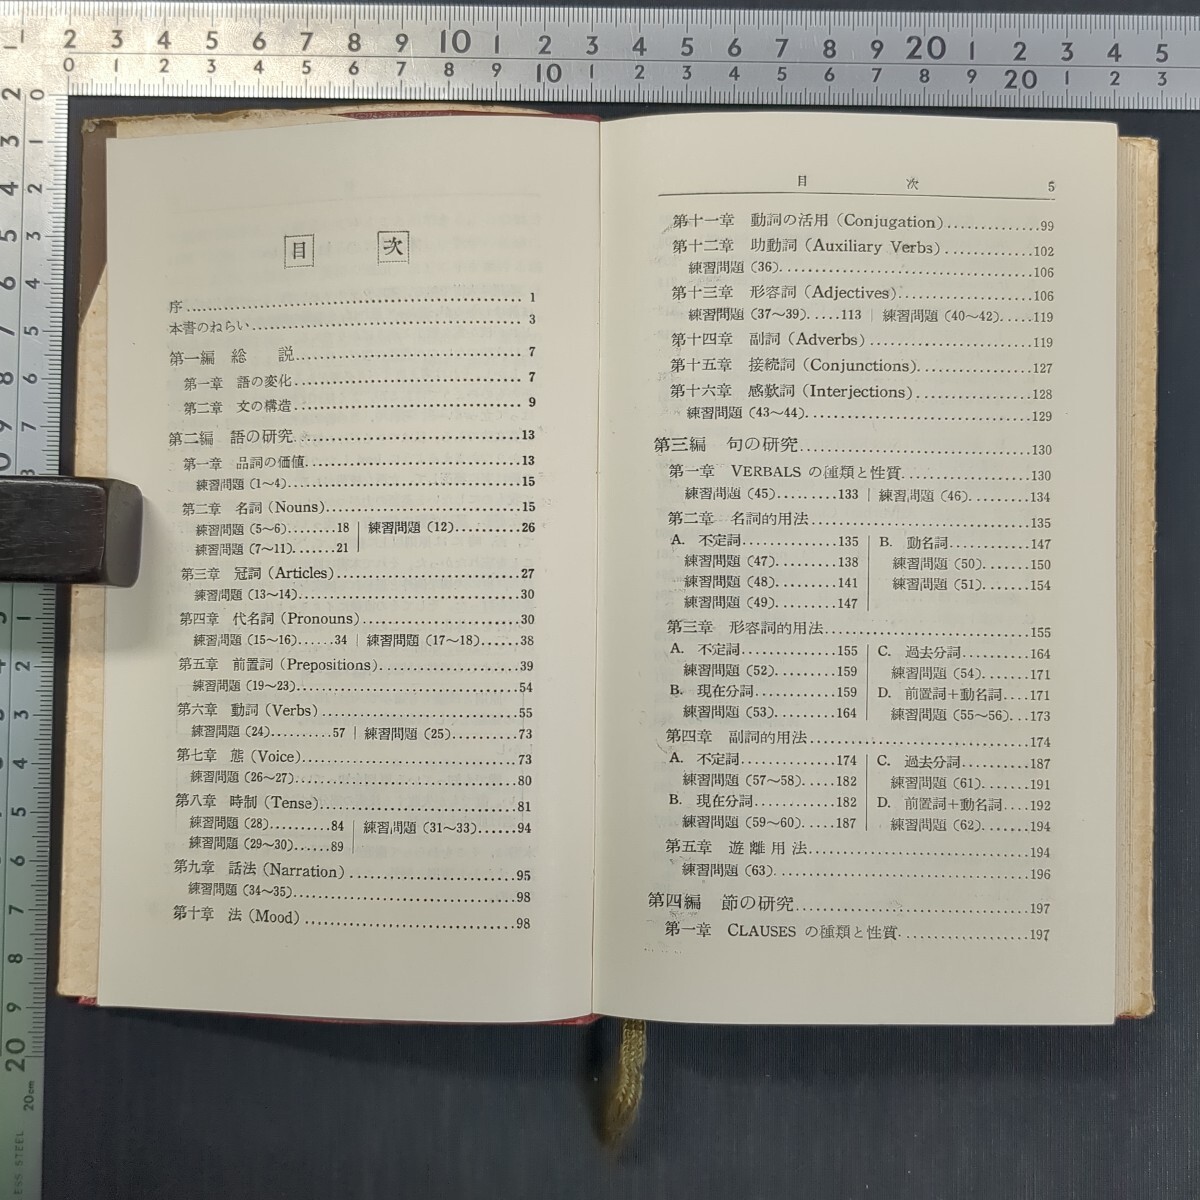 目 次
序 1
本書のねらい 3
第一編 総 説 7
第一章 語の変化 7
第二章 文の構造 9
第二編 語の研究 13
第一章 品詞の価値 13
練習問題 (1〜4) 15
第二章 名詞 (Nouns) 15
練習問題 (5〜6) 18 | 練習問題 (12) 26
練習問題 (7〜11) 21
第三章 冠詞 (Articles) 27
練習問題 (13〜14) 30
第四章 代名詞 (Pronouns) 30
練習問題 (15〜16) 34 | 練習問題 (17〜18) 38
第五章 前置詞 (Prepositions) 39
練習問題 (19〜23) 54
第六章 動詞 (Verbs) 55
練習問題 (24) 57 | 練習問題 (25) 73
第七章 態 (Voice) 73
練習問題 (26〜27) 80
第八章 時制 (Tense) 81
練習問題 (28) 84 | 練習問題 (31〜33) 94
練習問題 (29〜30) 89
第九章 話法 (Narration) 95
練習問題 (34〜35) 98
第十章 法 (Mood) 98
目 次 5
第十一章 動詞の活用 (Conjugation) 99
第十二章 助動詞 (Auxiliary Verbs) 102
練習問題 (36) 106
第十三章 形容詞 (Adjectives) 106
練習問題 (37〜39) 113 | 練習問題 (40〜42) 119
第十四章 副詞 (Adverbs) 119
第十五章 接続詞 (Conjunctions) 127
第十六章 感歎詞 (Interjections) 128
練習問題 (43〜44) 129
第三編 句の研究 130
第一章 VERBALS の種類と性質 130
練習問題 (45) 133 | 練習問題 (46) 134
第二章 名詞的用法 135
A. 不定詞 135 | B. 動名詞 147
練習問題 (47) 138 | 練習問題 (50) 150
練習問題 (48) 141 | 練習問題 (51) 154
練習問題 (49) 147
第三章 形容詞的用法 155
A. 不定詞 155 | C. 過去分詞 164
練習問題 (52) 159 | 練習問題 (54) 171
B. 現在分詞 159 | D. 前置詞+動名詞 171
練習問題 (53) 164 | 練習問題 (55〜56) 173
第四章 副詞的用法 174
A. 不定詞 174 | C. 過去分詞 187
練習問題 (57〜58) 182 | 練習問題 (61) 191
B. 現在分詞 182 | D. 前置詞+動名詞 192
練習問題 (59〜60) 187 | 練習問題 (62) 194
第五章 遊離用法 194
練習問題 (63) 196
第四編 節の研究 197
第一章 CLAUSES の種類と性質 197